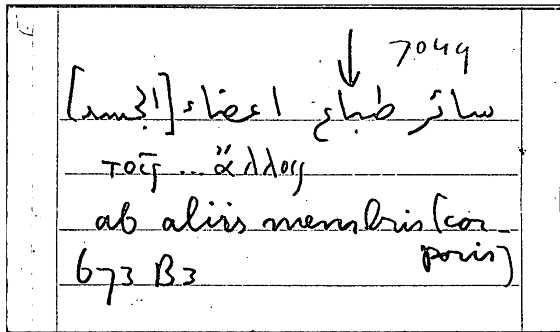 ↓ 7049
سائر طباع اعضاء [الجسد]
τοῖς ... ἄλλοις
ab aliis membris [cor-
poris]
673 B3